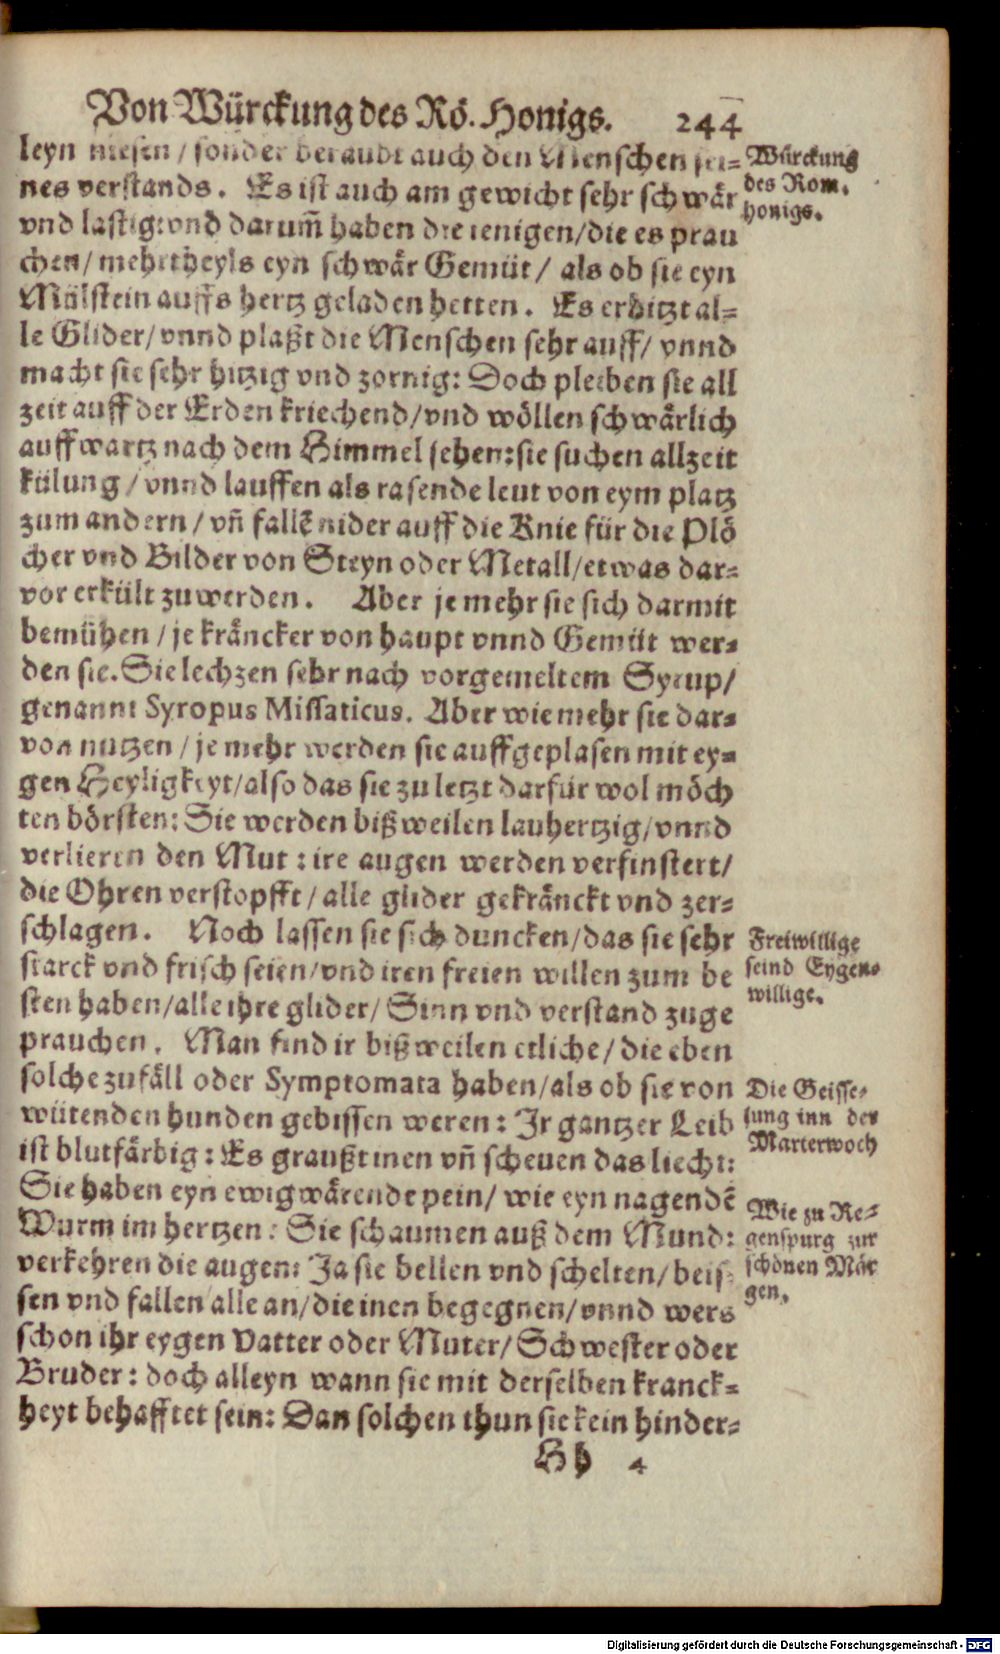 Von Würckung des Rö. Honigs. 244
leyn niesen / sonder beraubt auch den Menschen sei-
nes verstands. Es ist auch am gewicht sehr schwär
vnd lastig: vnd darum̃ haben die ienigen / die es prau
chen / mehrtheyls eyn schwär Gemüt / als ob sie eyn
Mülstein auffs hertz geladen hetten. Es erhitzt al-
le Glider / vnnd plaßt die Menschen sehr auff / vnnd
macht sie sehr hitzig vnd zornig: Doch pleiben sie all
zeit auff der Erden kriechend / vnd wöllen schwärlich
auffwartz nach dem Himmel sehen: sie suchen allzeit
külung / vnnd lauffen als rasende leut von eym platz
zum andern / vñ fallẽ nider auff die Knie für die Plö
cher vnd Bilder von Steyn oder Metall / etwas dar-
vor erkült zuwerden. Aber je mehr sie sich darmit
bemühen / je kräncker von haupt vnnd Gemüt wer-
den sie. Sie lechzen sehr nach vorgemeltem Syrup /
genannt Syropus Missaticus. Aber wie mehr sie dar-
von nutzen / je mehr werden sie auffgeplasen mit ey-
gen Heyligkeyt / also das sie zu letzt darfür wol möch
ten börsten: Sie werden bißweilen lauhertzig / vnnd
verlieren den Mut: ire augen werden verfinstert /
die Ohren verstopfft / alle glider gekränckt vnd zer-
schlagen. Noch lassen sie sich duncken / das sie sehr
starck vnd frisch seien / vnd iren freien willen zum be
sten haben / alle ihre glider / Sinn vnd verstand zuge
prauchen. Man find ir bißweilen etliche / die eben
solche zufäll oder Symptomata haben / als ob sie von
wütenden hunden gebissen weren: Ir gantzer Leib
ist blutfärbig: Es graußt inen vñ scheuen das liecht:
Sie haben eyn ewigwärende pein / wie eyn nagendẽ
Wurm im hertzen: Sie schaumen auß dem Mund:
verkehren die augen: Ja sie bellen vnd schelten / beis-
sen vnd fallen alle an / die inen begegnen / vnnd wers
schon ihr eygen Vatter oder Muter / Schwester oder
Bruder: doch alleyn wann sie mit derselben kranck-
heyt behafftet sein: Dan solchen thun sie kein hinder-
Hh 4
Würckung
des Rom.
honigs.
Freiwillige
seind Eygen-
willige.
Die Geisse-
lung inn der
Marterwoch
Wie zu Re-
genspurg zur
schönen Mär
gen.
Digitalisierung gefördert durch die Deutsche Forschungsgemeinschaft - DFG